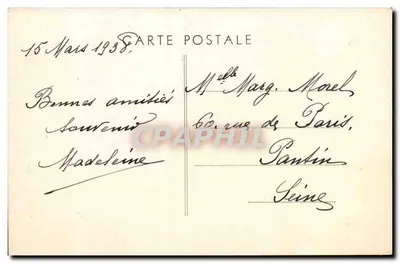 CARTE POSTALE
15 Mars 1938.
Bonnes amitiés
Souvenir
Madeleine
Melle Marg. Morel
60, rue de Paris,
Pantin
Seine
CPAPHIL